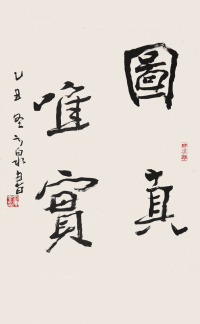 圖真
唯實
乙丑冬方泉書